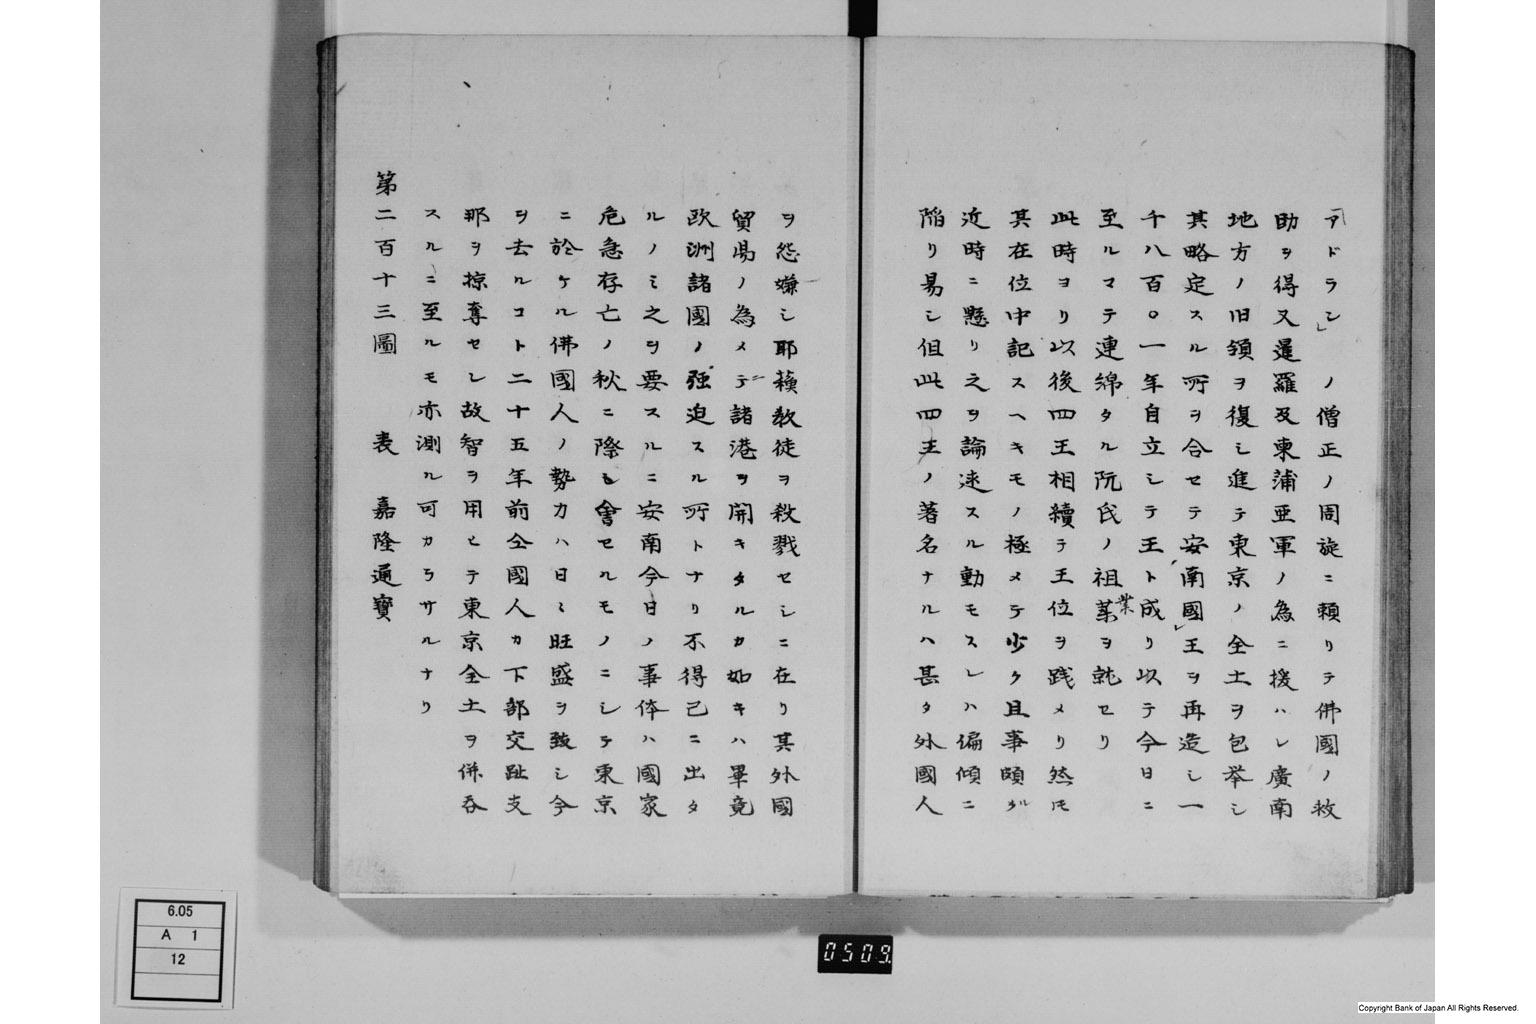 「アドラン」ノ僧正ノ周旋ニ頼リテ佛國ノ救
助ヲ得又暹羅及東蒲亜軍ノ為ニ援ハレ廣南
地方ノ旧領ヲ復シ進テ東京ノ全土ヲ包挙シ
其略定スル所ヲ合セテ安南國王ヲ再造シ一
千八百〇一年自立シテ王ト成リ以テ今日ニ
至ルマテ連綿タル阮氏ノ祖業ヲ肇セリ
此時ヨリ以後四王相續テ王位ヲ践メリ然モ
其在位中記スヘキモノ極メテ少ク且事頗ル
近時ニ懸リ之ヲ論述スル動モスレハ偏傾ニ
陥リ易シ但此四王ノ著名ナルハ甚タ外國人
ヲ怨嫌シ耶蘓教徒ヲ殺戮セシニ在リ其外國
貿易ノ為メニ諸港ヲ開キタルカ如キハ畢竟
欧洲諸國ノ強迫スル所トナリ不得已ニ出タ
ルノミ之ヲ要スルニ安南今日ノ事体ハ國家
危急存亡ノ秋ニ際シ會セルモノニシテ東京
ニ於ケル佛國人ノ勢力ハ日ニ旺盛ヲ致シ今
ヲ去ルコト二十五年前仝國人カ下部交趾支
那ヲ掠奪セシ故智ヲ用ヒテ東京全土ヲ併吞
スルニ至ルモ亦測ル可カラサルナリ
第二百十三圖 表 嘉隆通寳
0509
6.05
A 1
12
Copyright Bank of Japan All Rights Reserved.